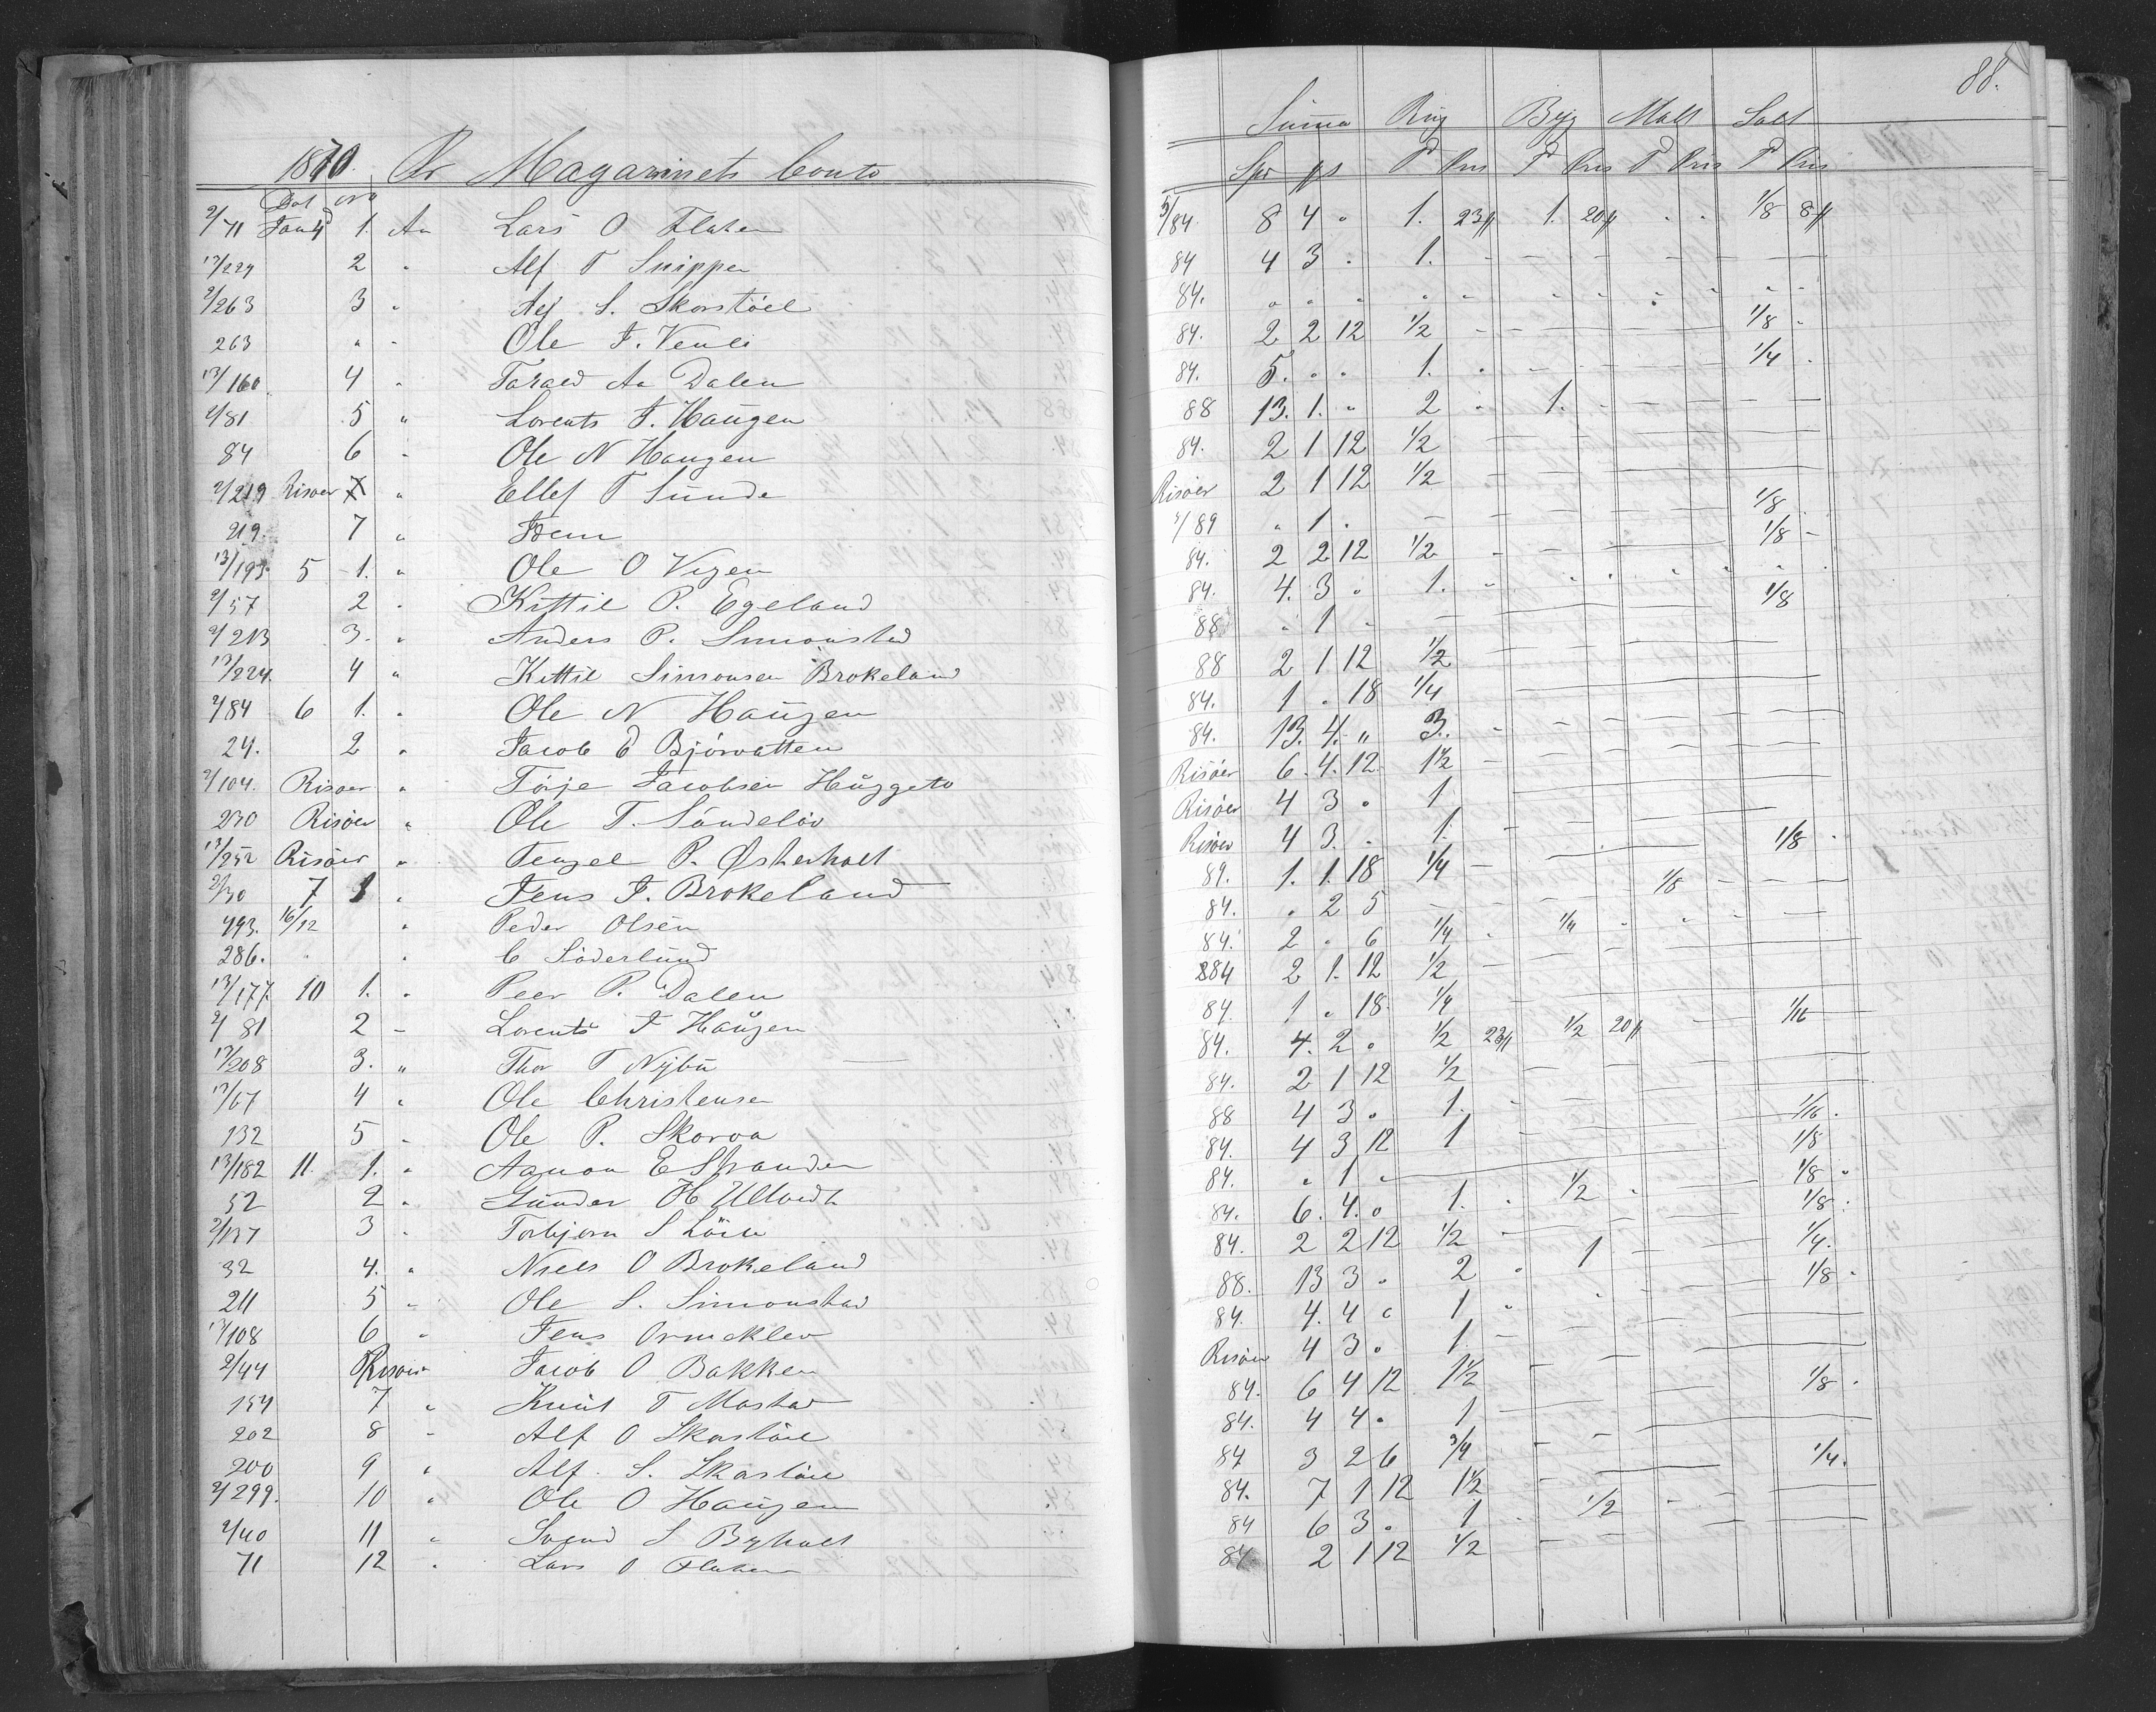 88.
1870. Pr Magazinets Conto
Summa Rug Byg Malt Salt
Dat No
Spd ps T Pris T Pris T Pris T Pris
2/71 Jan 4 1. An Lars O Flaten 5/84 8 4 " 1. 23ß 1. 20ß " " 1/8 8ß
13/229 2 " Alf T Snippen 84 4 3 . 1. - - - - - - -
2/263 3 " Alf S. Skorstöel 84. " " " " " " " " " " "
263 " " Ole T. Venli 84. 2 2 12 1/2 - - - - - 1/8 -
13/160 4 " Tarald Aa Dalen 84. 5. " " 1. " - - - - 1/4 .
2/81 5 " Lorents F. Haugen 88 13. 1. " 2 " 1. - - - - -
84 6 " Ole N Haugen 84. 2 1 12 1/2 - - - -
2/219 Risøer 7 " Ellef T Sunde Risöer 2 1 12 1/2 - - -
219. 7 " Idem 5/89 " 1 . - - - - 1/8
13/193. 5 1. " Ole O Vegen 84. 2 2 12 1/2 - - - 1/8 -
2/57 2 " Kittil P. Egeland 84. 4. 3 " 1. " " " " " " "
2/213 3. " Anders P. Simonstad 88 " 1 " - - - 1/8
13/224. 4 " Kittil Simonsen Brokeland 88 2 1 12 1/2 - - -
2/84 6 1. " Ole N Haugen 84. 1 . 18 1/4 - - -
24. 2 " Jacob E Björvatten 84. 13. 4. " 3. - - - - -
2/104. Risøer " Törje Jacobsen Huggeto Risöer 6. 4. 12. 1 1/2 - - -
230 Risöer " Ole T. Sundelöv Risöer 4 3 " 1 - -
13/252 Risöer " Tengel P. Østerholt Risöer 4 3. . 1. - - - 1/8 .
2/30 7 1 " Jens J. Brokeland 89. 1. 1. 18 1/4 - - -
493. 16/12 " Peder Olsen 84. " 2 5 - - - 1/8 - - -
286. " " C Söderlund 84. 2 " 6 1/4 " 1/4 " " " "
13/177 10 1. " Peer P. Dalen 284 2 1. 12 1/2 - - -
2/81 2 - Lorents F Haugen 84. 1 . 18. 1/4 - - 1/16
13/208 3. " Thor T Nybu 84. 4. 2 " 1/2 23ß 1/2 20ß - -
13/67 4 " Ole Christensen 84. 2 1 12 1/2 - - -
132 5 " Ole P. Skorva 88 4 3 " 1. - - - 1/16 .
13/182 11. 1. " Aanon E Stranden 84. 4 3 12 1 - - - 1/8
52 2 " Gunder H Ulltveit 84. " 1 " - - - 1/8 "
2/137 3 " Torbjørn S Löite 84. 6. 4. " 1. " 1/2 " - - 1/8 .
32 4. " Niels O Brokeland 84. 2 2 12 1/2 - - - 1/4.
211 5 " Ole S. Simonstad 88. 13 3 " 2 " 1 - - - 1/8 .
13/108 6 " Jens Ormeklev 84. 4. 4 " 1 " " - -
2/44 Risöer Jacob O Bakken Risöer 4 3 " 1 - - -
154 7 " Knut T Mostad 84. 6 4 12 1 1/2 - - - 1/8 .
202 8 - Alf O Skorstöel 84. 4 4 " 1 - - -
200 9 " Alf. S. Skorstöel 84 3 2 6 3/4 - - - 1/4.
2/299. 10 " Ole O Haugen 84. 7 1 12 1 1/2 - - -
2/40 11 " Svend S Byholt 84 6 3 . 1 " 1/2 - - -
71 12 " Lars O Flaten 84 2 1 12 1/2 - - -